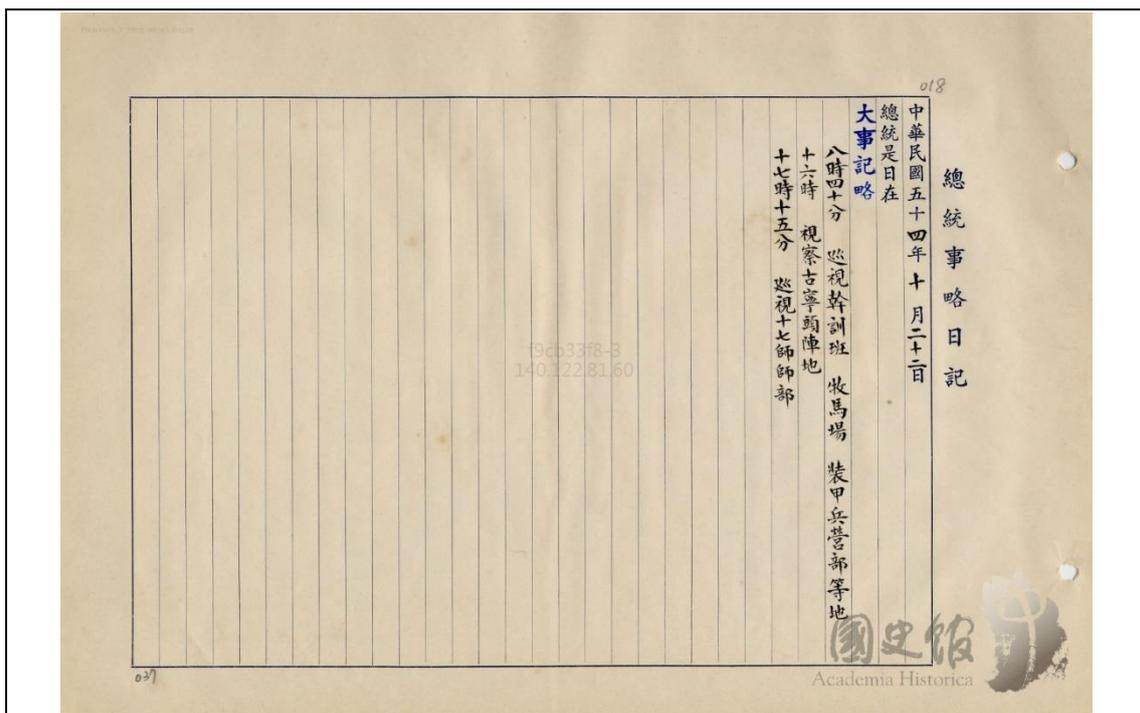 018
總統事略日記
中華民國五十四年十月二十二日
總統是日在
大事記略
八時四十分 巡視幹訓班 牧馬場 裝甲兵營部等地
十六時 視察古寧頭陣地
十七時十五分 巡視十七師師部
f9cb33f8-3
140.122.81.60
037
國史館
Academia Historica